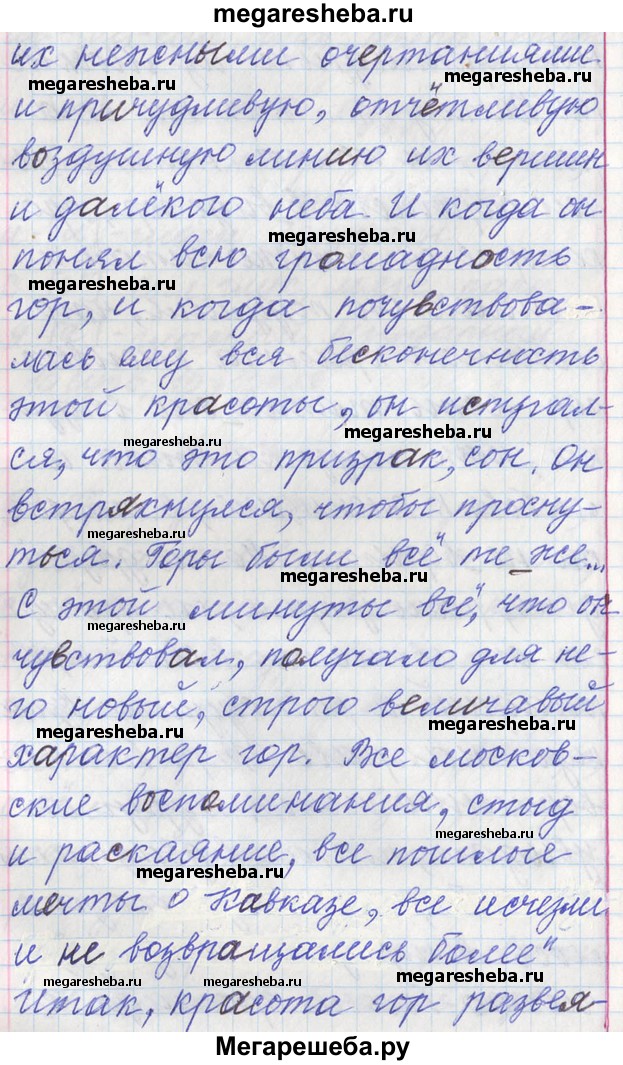 megaresheba.ru
их нежными очертаниями
megaresheba.ru megaresheba.ru
и причудливую, отчётливую
воздушную линию их вершин
и далёкого неба. И когда он
megaresheba.ru
понял всю громадность
гор, и когда почувствова-
лась ему вся бесконечность
этой красоты, он испугал-
megaresheba.ru megaresheba.ru
ся, что это призрак, сон. Он
встряхнулся, чтобы просну-
megaresheba.ru
ться. Горы были всё те же...
megaresheba.ru
С этой минуты всё, что он
megaresheba.ru
чувствовал, получало для не-
го новый, строго величавый
megaresheba.ru megaresheba.ru
характер гор. Все москов-
ские воспоминания, стыд
megaresheba.ru
и раскаяние, все пошлые
megaresheba.ru
мечты о Кавказе, все исчезли
и не возвращались более"
megaresheba.ru megaresheba.ru megaresheba.ru
Итак, красота гор развея-
Мегарешеба.ру